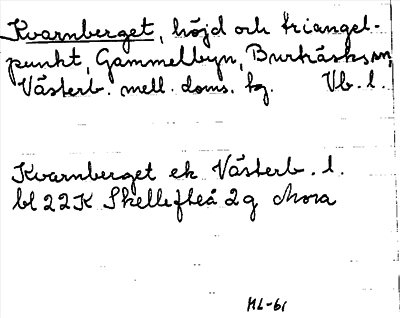 Kvarnberget, höjd och triangel-
punkt, Gammelbyn, Burträsks sn,
Västerb. mell. doms. tg. Vb. l.
Kvarnberget ek Västerb. l.
bl 22K Skellefteå 2g Mora
ML-61